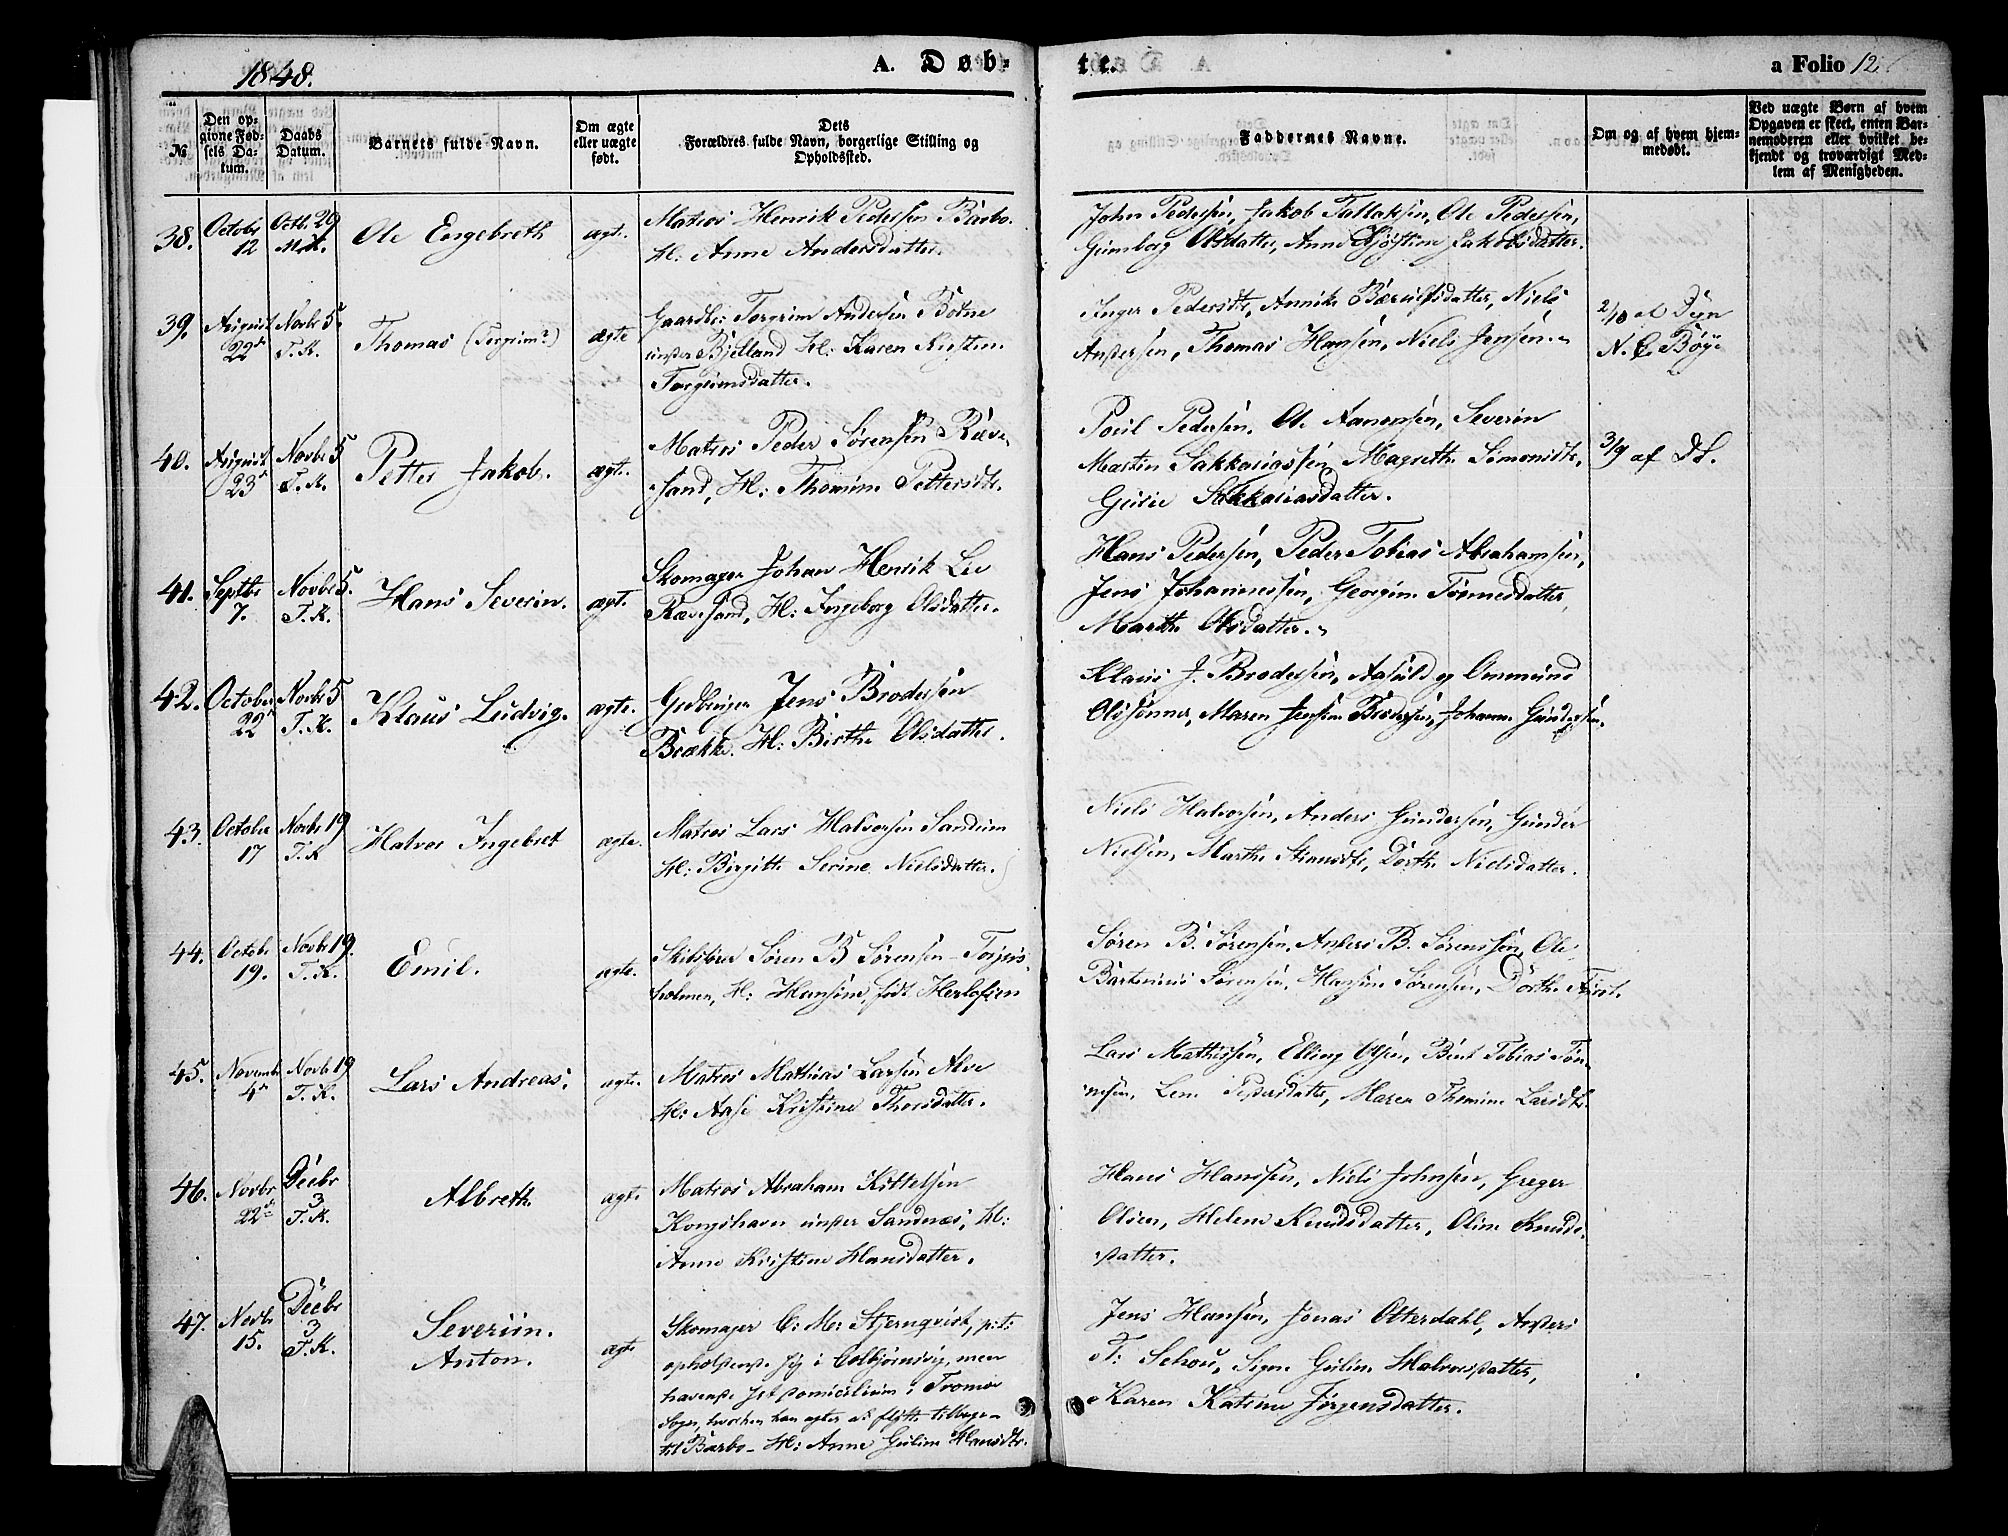 1848.
A. Døb-
te.
a Folio 12
№
Den op-
givne Fød-
sels Da-
tum.
Daabs
Datum.
Barnets fulde Navn.
Om ægte
eller uægte
født.
Dets
Forældres fulde Navn, borgerlige Stilling og
Opholdssted.
Faddernes Navne.
Om og af hvem hjem-
medøbt.
Ved uægte Børn af hvem
Opgaven er skeet, enten Bar-
nemoderen eller hvilket be-
kjendt og troværdigt Med-
lem af Menigheden.
38.
Octobr
12
Octb. 29
Ole Engebreth
ægte.
Matros Henrik Pedersen Barbo.
H: Anne Andersdatter.
John Pedersen, Jakob Tallaksen, Ole Pedersen,
Gunborg Olsdatter, Anne Jakobsdatter.
39.
August
22d
Novbr 5.
T. K.
Thomas (Torgrim?)
ægte
Gaardbr: Torgrim Andersen
under Bjelland H: Karen Kirstine
Torgrimsdatter.
Inger Pedersdtr, Annike Børuldsdatter, Niels
Andersen, Thomas Hansen, Niels Jensen.
2/10
N. C. Bøye
40.
August
23d
Novbr 5
T. K.
Petter Jakob.
ægte.
Matros Peder Sørensen Ræve-
sand, H: Thomine Pettersdtr.
Poul Pedersen, Ole Aanonsen, Severin
Martin Sakkariassen, Magrethe Simonsdtr,
Gurie Sakkariasdatter.
3/9 af DS.
41.
Septbr
7.
Novbr 5.
T. K.
Hans Severin.
ægte
Skomager Johan Henrik Lie
Rævesand, H: Ingeborg Olsdatter.
Hans Pedersen, Peder Tobias Abrahamsen,
Jens Johannessen, Georgine Tønnesdatter,
Marthe Olsdatter.
42.
October
22d
Novbr 5
T. K.
Klaus Ludvig.
ægte.
Jens Brodersen
Brække. H: Birthe Olsdatter.
Klaus J. Brodersen, Aasuld og Ommund
Olssønner, Maren Jensine Brodersen, Johanne Gundersen.
43.
October
17
Novbr 19
T. K
Halvor Ingebret
ægte.
Matros Lars Halvorsen Sandum
H: Birgitte Serine Nielsdatter.
Niels Halvorsen, Anders Gundersen, Gunder
Nielsen, Marthe Dorthe Nielsdatter.
44.
Octobr
19.
Novbr 19.
T. K.
Emil.
ægte.
Skibsfører Søren B Sørensen Torjus-
holmen, H: Hansine, født Herlofsen
Søren B. Sørensen, Anders B. Sørensen, Ole
Bartinius Sørensen, Hansine Sørensen, Dorthe
45.
Novembr
4d
Novbr 19
T. K.
Lars Andreas.
ægte.
Matros Mathias Larsen Alve
H: Aase Kristine Thorsdatter.
Lars Mathissen, Elling Olsen, Bent Tobias Tøn-
nesen, Lene Pedersdatter, Maren Thomine Larsdtr.
46.
Novbr
22d
Decbr
3
T. K.
Albreth
ægte
Matros Abraham Kittelsen
Kongshavn under Sandnæs, H:
Anne Kristine Hansdatter.
Hans Hanssen, Niels Johnsen, Greger
Olsen, Helene Knudsdatter, Oline Knuds-
datter.
47.
Novbr
15.
Decbr
3
T. K.
Severiin.
Anton.
ægte
Skomager C: Mer Stjernqvist, p: t:
opholdende sig i Colbjørnsvig, men
havende sit domicilium i Tromø
Sogn, hvorhen han agter at flytte tilbage
til Barbo - H: Anne Guline Hansdtr.
Jens Hansen, Jonas Otterdahl, Anders
T: Schou, Signe Guline Halvorsdatter,
Karen Katrine Jørgensdatter.